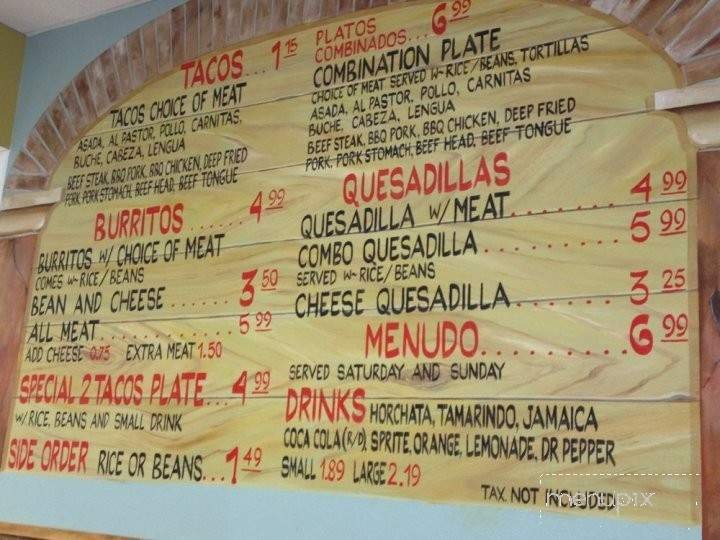 TACOS... 1 15
TACOS CHOICE OF MEAT
ASADA, AL PASTOR, POLLO, CARNITAS,
BUCHE, CABEZA, LENGUA
BEEF STEAK, BBQ PORK, BBQ CHICKEN, DEEP FRIED
PORK, PORK STOMACH, BEEF HEAD, BEEF TONGUE
BURRITOS ..... 4 99
BURRITOS W/ CHOICE OF MEAT
COMES W- RICE/BEANS
BEAN AND CHEESE ...... 3 50
ALL MEAT............ 5 99
ADD CHEESE 0.75 EXTRA MEAT 1.50
SPECIAL 2 TACOS PLATE... 4 99
W/ RICE, BEANS AND SMALL DRINK
SIDE ORDER RICE OR BEANS... 1 49
PLATOS
COMBINADOS... 6 99
COMBINATION PLATE
CHOICE OF MEAT SERVED W-RICE/BEANS, TORTILLAS
ASADA, AL PASTOR, POLLO, CARNITAS
BUCHE, CABEZA, LENGUA
BEEF STEAK, BBQ PORK, BBQ CHICKEN, DEEP FRIED
PORK, PORK STOMACH, BEEF HEAD, BEEF TONGUE
QUESADILLAS
QUESADILLA W/MEAT........ 4 99
COMBO QUESADILLA .......... 5 99
SERVED W-RICE/BEANS
CHEESE QUESADILLA........ 3 25
MENUDO.......... 6 99
SERVED SATURDAY AND SUNDAY
DRINKS HORCHATA, TAMARINDO, JAMAICA
COCA COLA (R/D), SPRITE, ORANGE, LEMONADE, DR PEPPER
SMALL 1.89 LARGE 2.19
TAX NOT INCLUDED
menupix